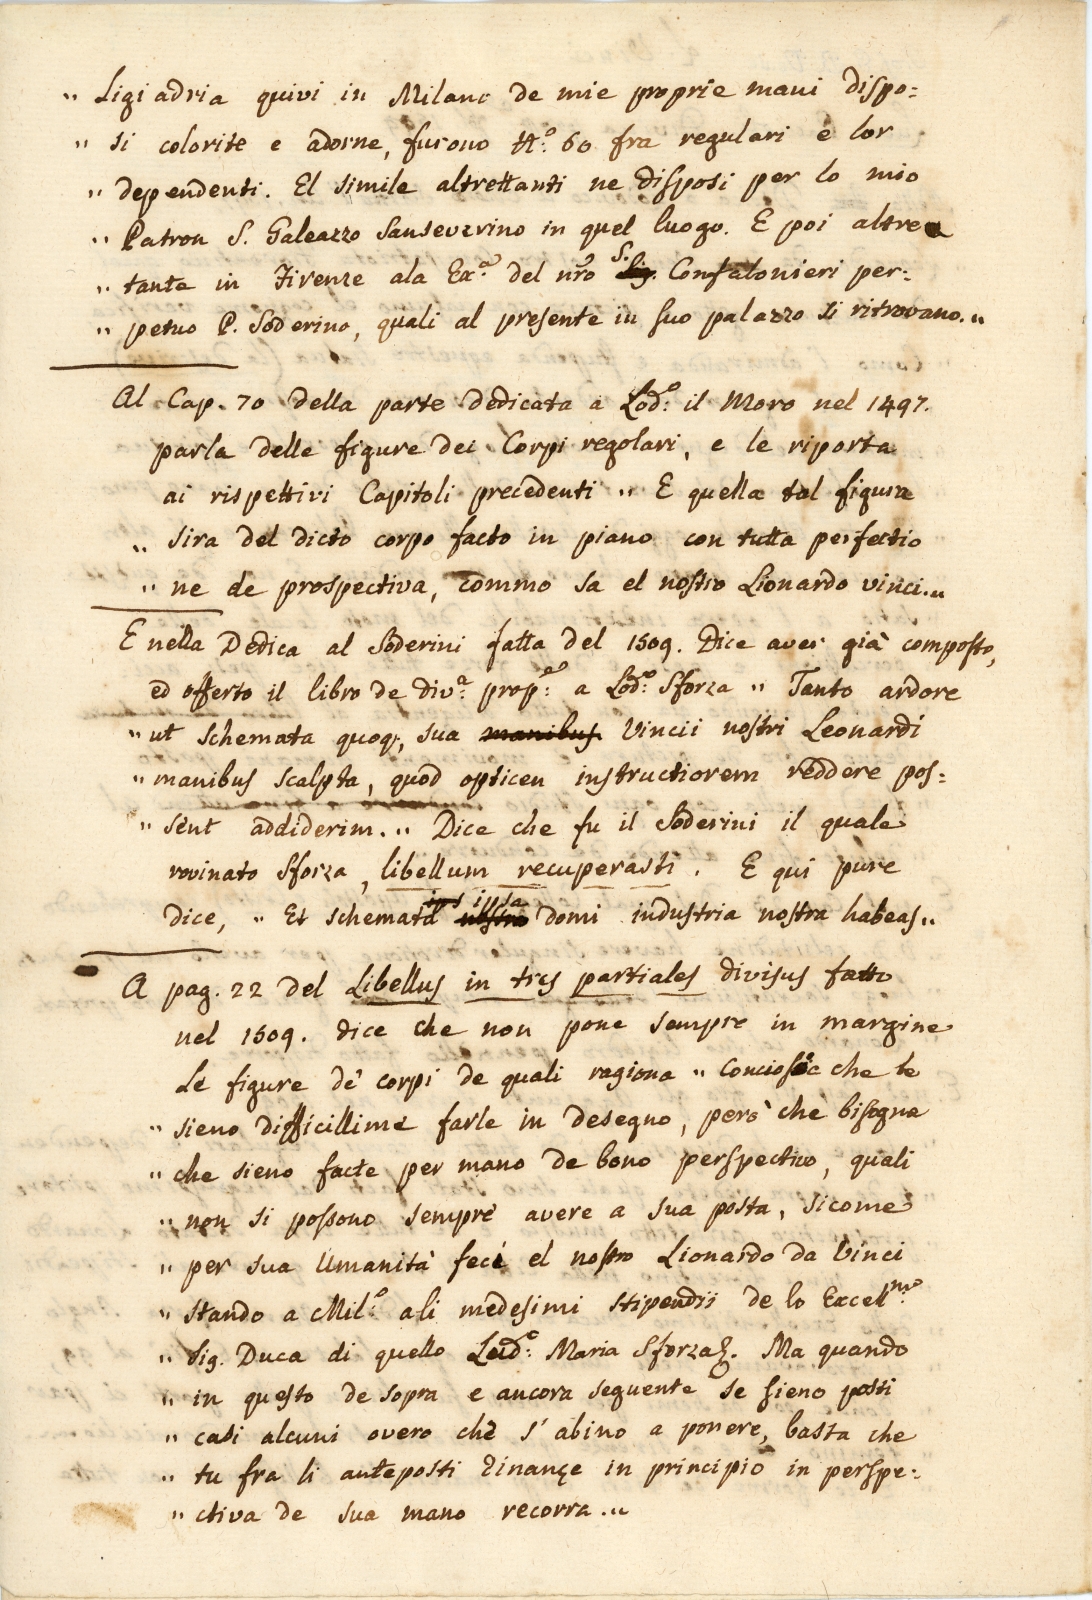 " Ligiadria quivi in Milano de mie proprie mani dispo=
" si colorite e adorne, furono N.º 60 fra regulari e lor
" dependenti. El simile altrettanti ne disposi per lo mio
" Patron S. Galeazzo Sanseverino in quel luogo. E poi altre
" tante in Firenze ala Exª del nrõ S. Confalonieri per=
" petuo P. Soderino, quali al presente in suo palazzo si ritrovano."
Al Cap. 70 della parte dedicata a Lodº: il Moro nel 1497.
parla delle figure dei Corpi regolari, e le riporta
ai rispettivi Capitoli precedenti " E quella tal figura
" sira del dicto corpo facto in piano con tutta perfectio
" ne de prospectiva, commo sa el nostro Lionardo vinci."
E nella Dedica al Soderini fatta del 1509. Dice aver già composto,
ed offerto il libro de divª: propº: a Lodº: Sforza " Tanto ardore
" ut schemata quoq;, sua manibus Vincii nostri Leonardi
" manibus scalpta, quod opticen instructiorem reddere pos=
" sent addiderim." Dice che fu il Soderini il quale
rovinato Sforza, libellum recuperasti. E qui pure
dice, " Et schemata ipsa domi industria nostra habeas"
A pag. 22 del Libellus in tres partiales divisus fatto
nel 1509. dice che non pone sempre in margine
Le figure dè corpi de quali ragiona " che le
" sieno difficillime farle in desegno, però che bisogna
" che sieno facte per mano de bono perspectivo, quali
" non si possono sempre avere a sua posta, sicome
" per sua Umanità feci el nostro Lionardo da Vinci
" stando a Milº ali medesimi stipendii de lo Excelmº:
" Sig. Duca di quello Ludº: Maria Sforza. Ma quando
" in questo de sopra e ancora sequente se sieno posti
" casi alcuni overo chè s'abino a ponere, basta che
" tu fra li anteposti in principio in perspe=
" ctiva de sua mano recorra."